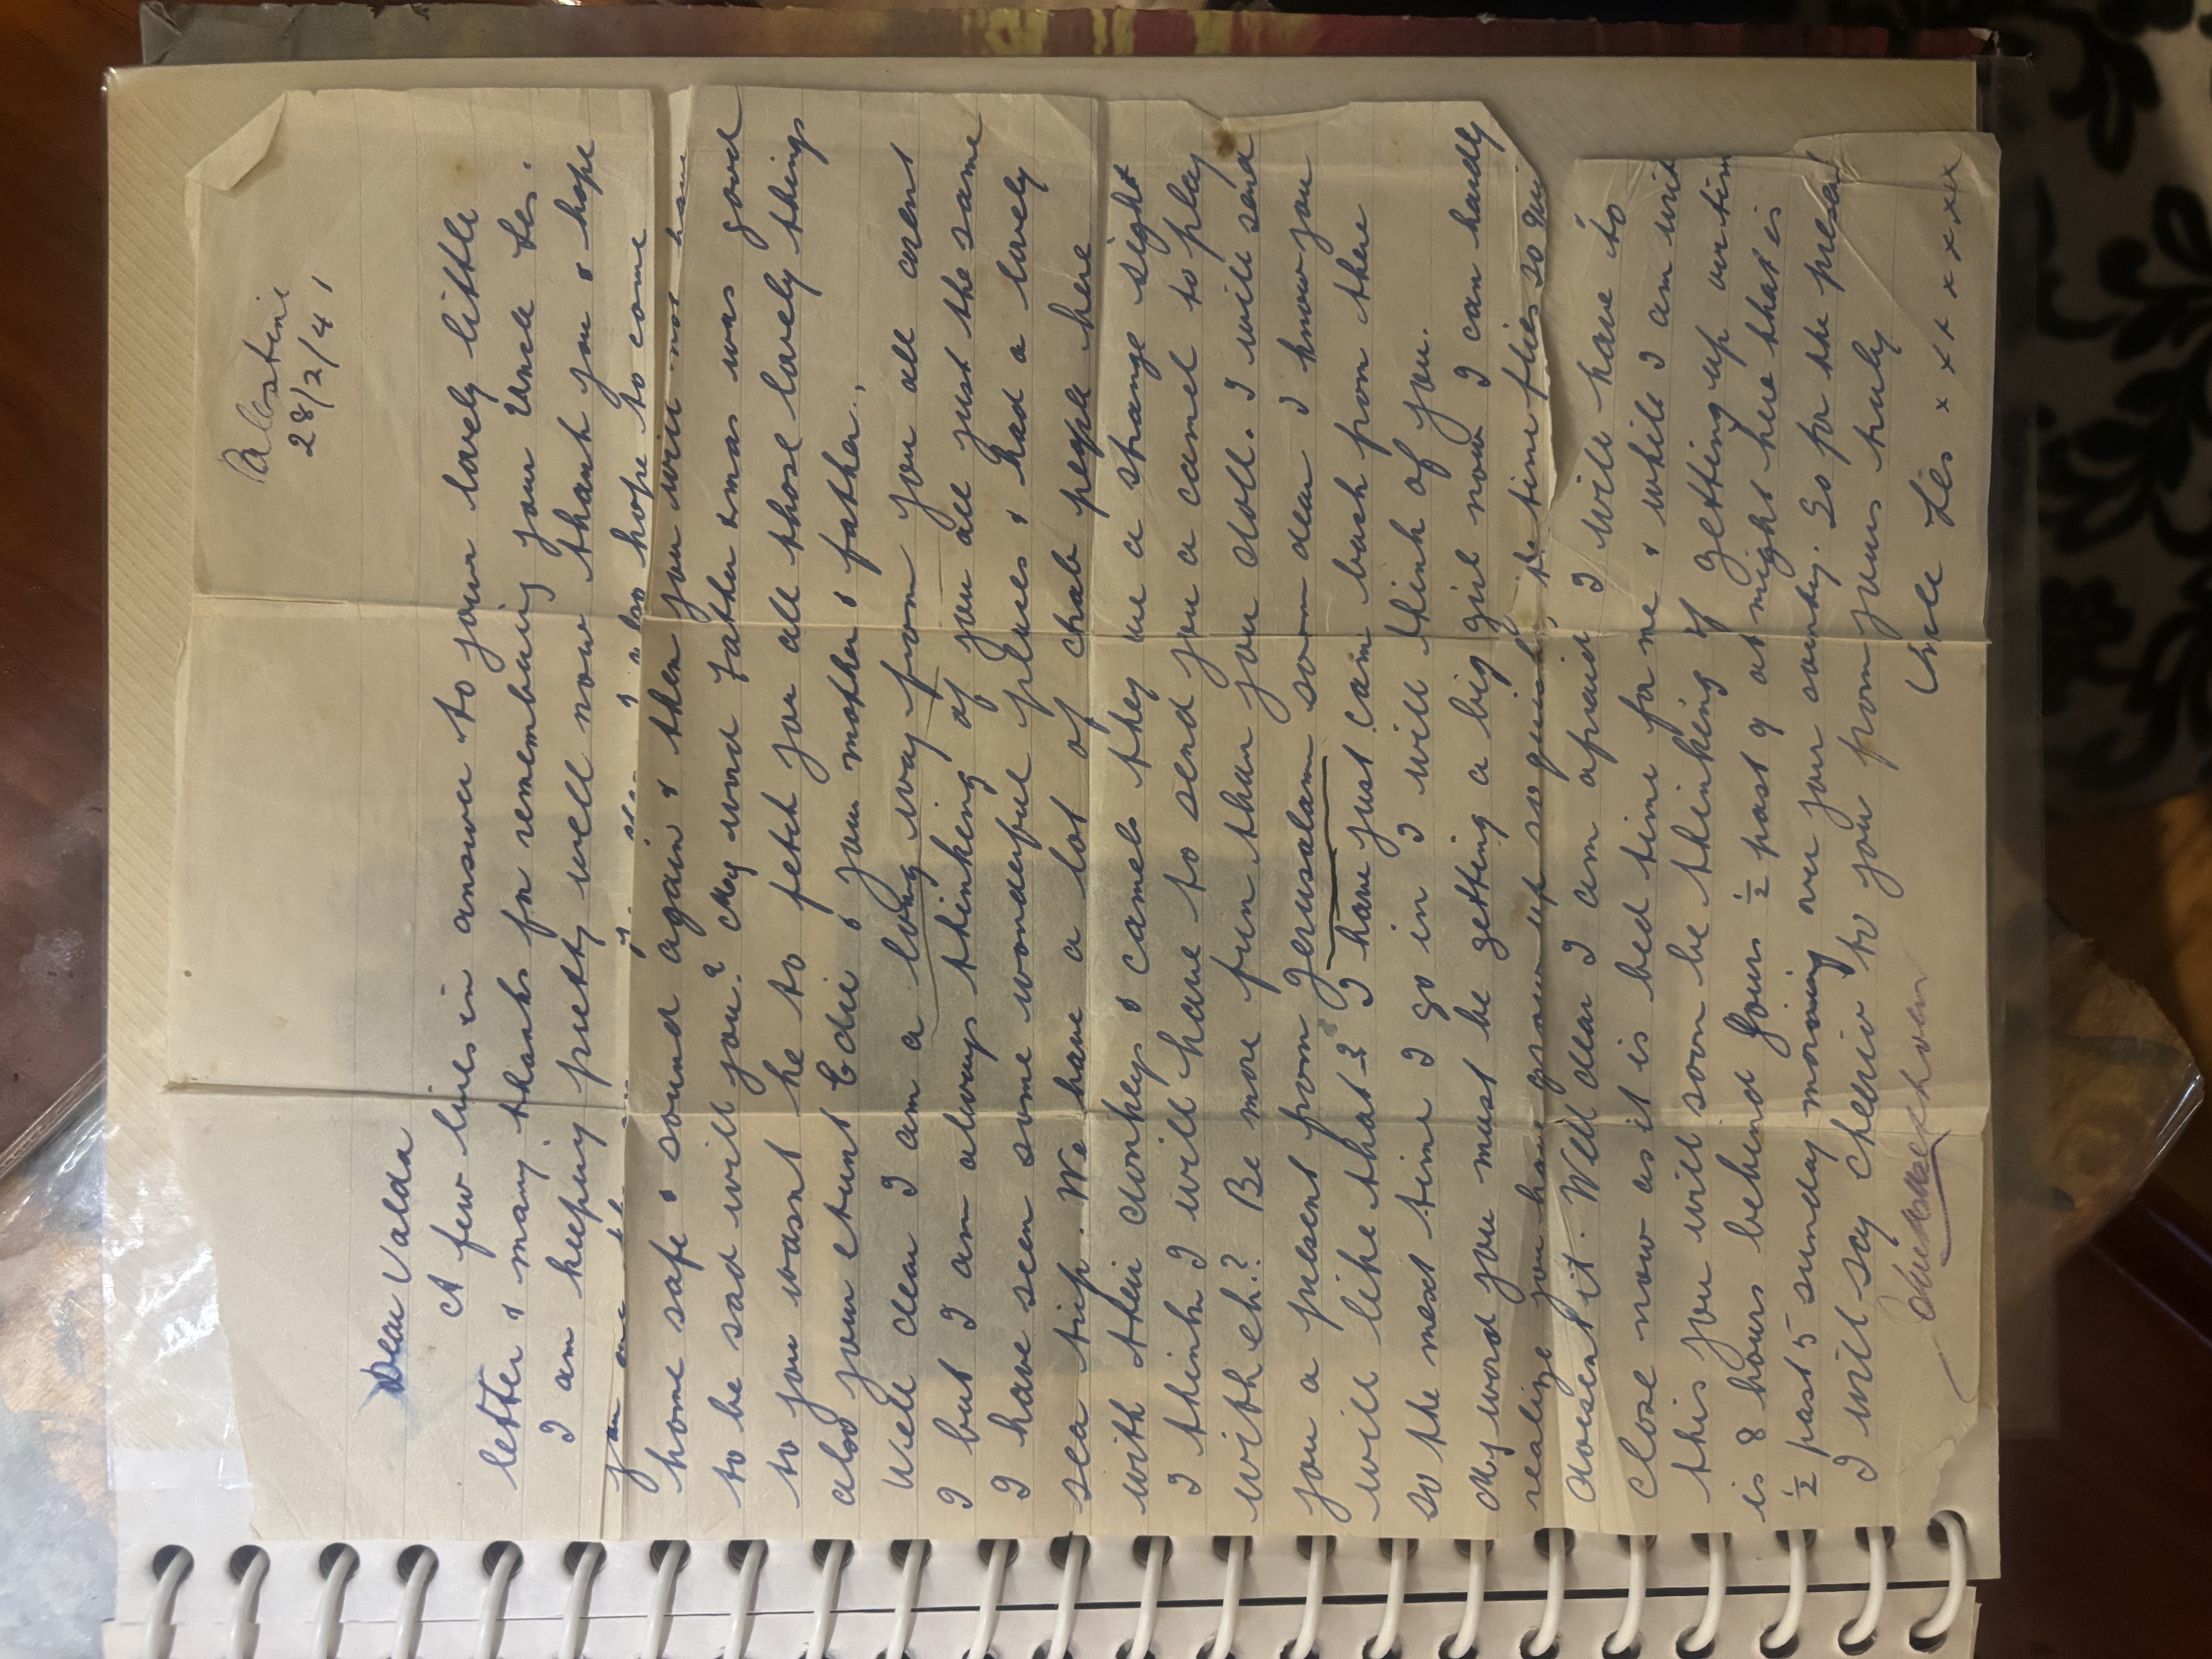 Palestine
28/2/41
Dear Valda
A few lines in answer to your lovely little
letter & many thanks for remembering your Uncle Les.
I am keeping pretty well now thank you & hope
you are
hope to come
home safe & sound again & then you will not have
to be sad will you? My word Father Xmas was good
to you wasnt he to fetch you all those lovely things
also your Aunt Edie & your mother & father.
Well dear I am a long way from you all arent
I but I am always thinking of you all just the same
I have seen some wonderful places & had a lovely
sea trip. We have a lot of people here
with their donkeys & camels they are a strange sight
I think I will have to send you a camel to play
with eh? Be more fun than you doll. I will send
you a present from Jerusalam soon dear I know you
will like that? I have just cam back from there
so the next time I go in I will think of you.
My word you must be getting a big girl now I can hardly
realize you have grown up so quick, the time flies so
doesent it. Well dear I am afraid I will have to
close now as it is bed time for me & while I am
this you will soon be thinking of getting up
is 8 hours behind yours ½ past 9 at night here that is
½ past 5 sunday morning over your country. So for the
I will say cheerio to you from yours truly
Uncle Les. x x x x x x x